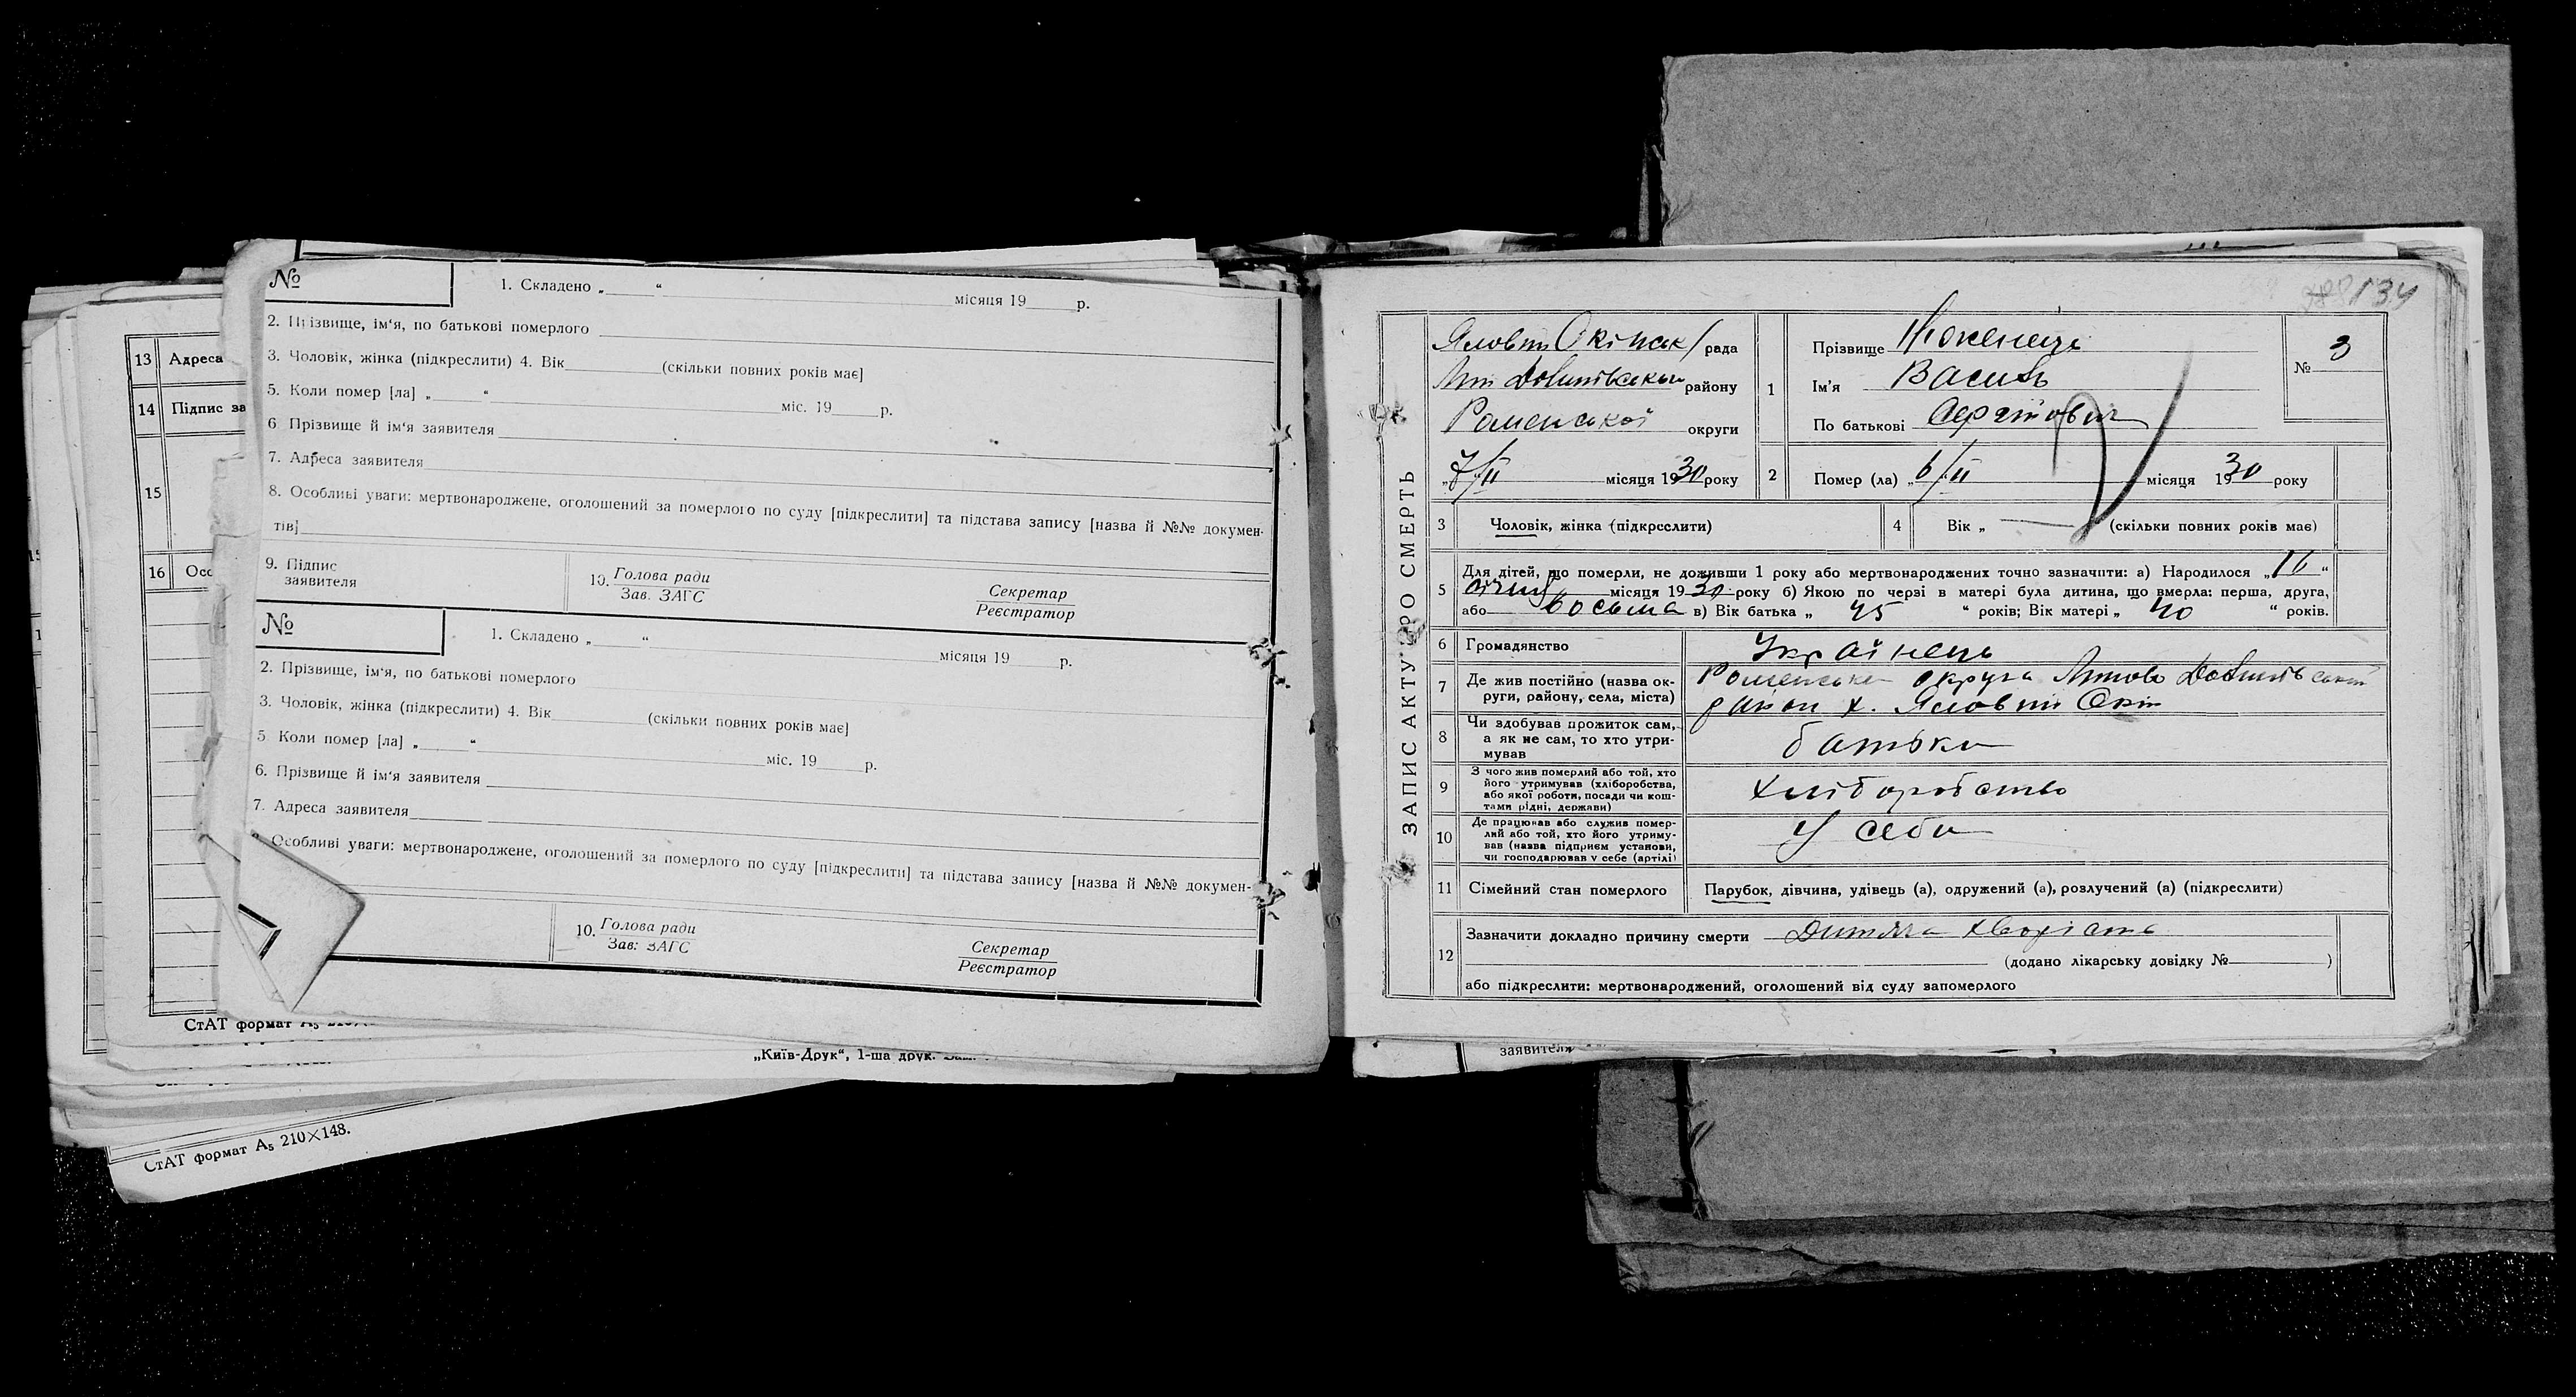 13 Адреса
14 Підпис за
15
16 Осо
СтАТ формат А₅
СтАТ формат А₅ 210×148.
„Київ-Друк“, 1-ша друк.
№
1. Складено „ “ місяця 19 р.
2. Прізвище, ім‘я, по батькові померлого
3. Чоловік, жінка (підкреслити) 4. Вік (скільки повних років має]
5. Коли помер [ла] „ “ міс. 19 р.
6 Прізвище й ім‘я заявителя
7. Адреса заявителя
8. Особливі уваги: мертвонароджене, оголошений за померлого по суду [підкреслити] та підстава запису [назва й №№ докумен-
тів]
9. Підпис
заявителя
10. Голова ради
Зав. ЗАГС
Секретар
Реєстратор
№
1. Складено „ “ місяця 19 р.
2. Прізвище, ім‘я, по батькові померлого
3. Чоловік, жінка (підкреслити) 4. Вік (скільки повних років має]
5 Коли помер [ла] „ “ міс. 19 р.
6. Прізвище й ім‘я заявителя
7. Адреса заявителя
Особливі уваги: мертвонароджене, оголошений за померлого по суду [підкреслити] та підстава запису [назва й №№ докумен-
10. Голова ради
Зав: ЗАГС
Секретар
Реєстратор
134
ЗАПИС АКТУ ПРО СМЕРТЬ
рада
району
Роменської округи
7/II місяця 1930 року
1
Прізвище
Ім‘я Василь
По батькові
№ 3
2 Помер (ла) „6/II місяця 1930 року
3 Чоловік, жінка (підкреслити)
4 Вік „ — (скільки повних років має)
5 Для дітей, що померли, не доживши 1 року або мертвонароджених точно зазначити: а) Народилося „16“
січня місяця 1930 року б) Якою по черзі в матері була дитина, що вмерла: перша, друга,
або восьма в) Вік батька „ 45 “ років; Вік матері „ 40 “ років.
6 Громадянство Українець
7 Де жив постійно (назва ок-
руги, району, села, міста)
Роменська округа
район х. Яловий Окіп
8 Чи здобував прожиток сам,
а як не сам, то хто утри-
мував
батьки
9 З чого жив померлий або той, хто
його утримував (хліборобства,
або якої роботи, посади чи кош-
тами рідні, держави)
Хліборобство
10 Де працював або служив помер-
лий або той, хто його утриму-
вав (назва підприєм установи,
чи господарював у себе (артілі)
У себе
11 Сімейний стан померлого Парубок, дівчина, удівець (а), одружений (а), розлучений (а) (підкреслити)
12 Зазначити докладно причину смерти Дитяча хворість
(додано лікарську довідку № )
або підкреслити: мертвонароджений, оголошений від суду запомерлого
заявителя